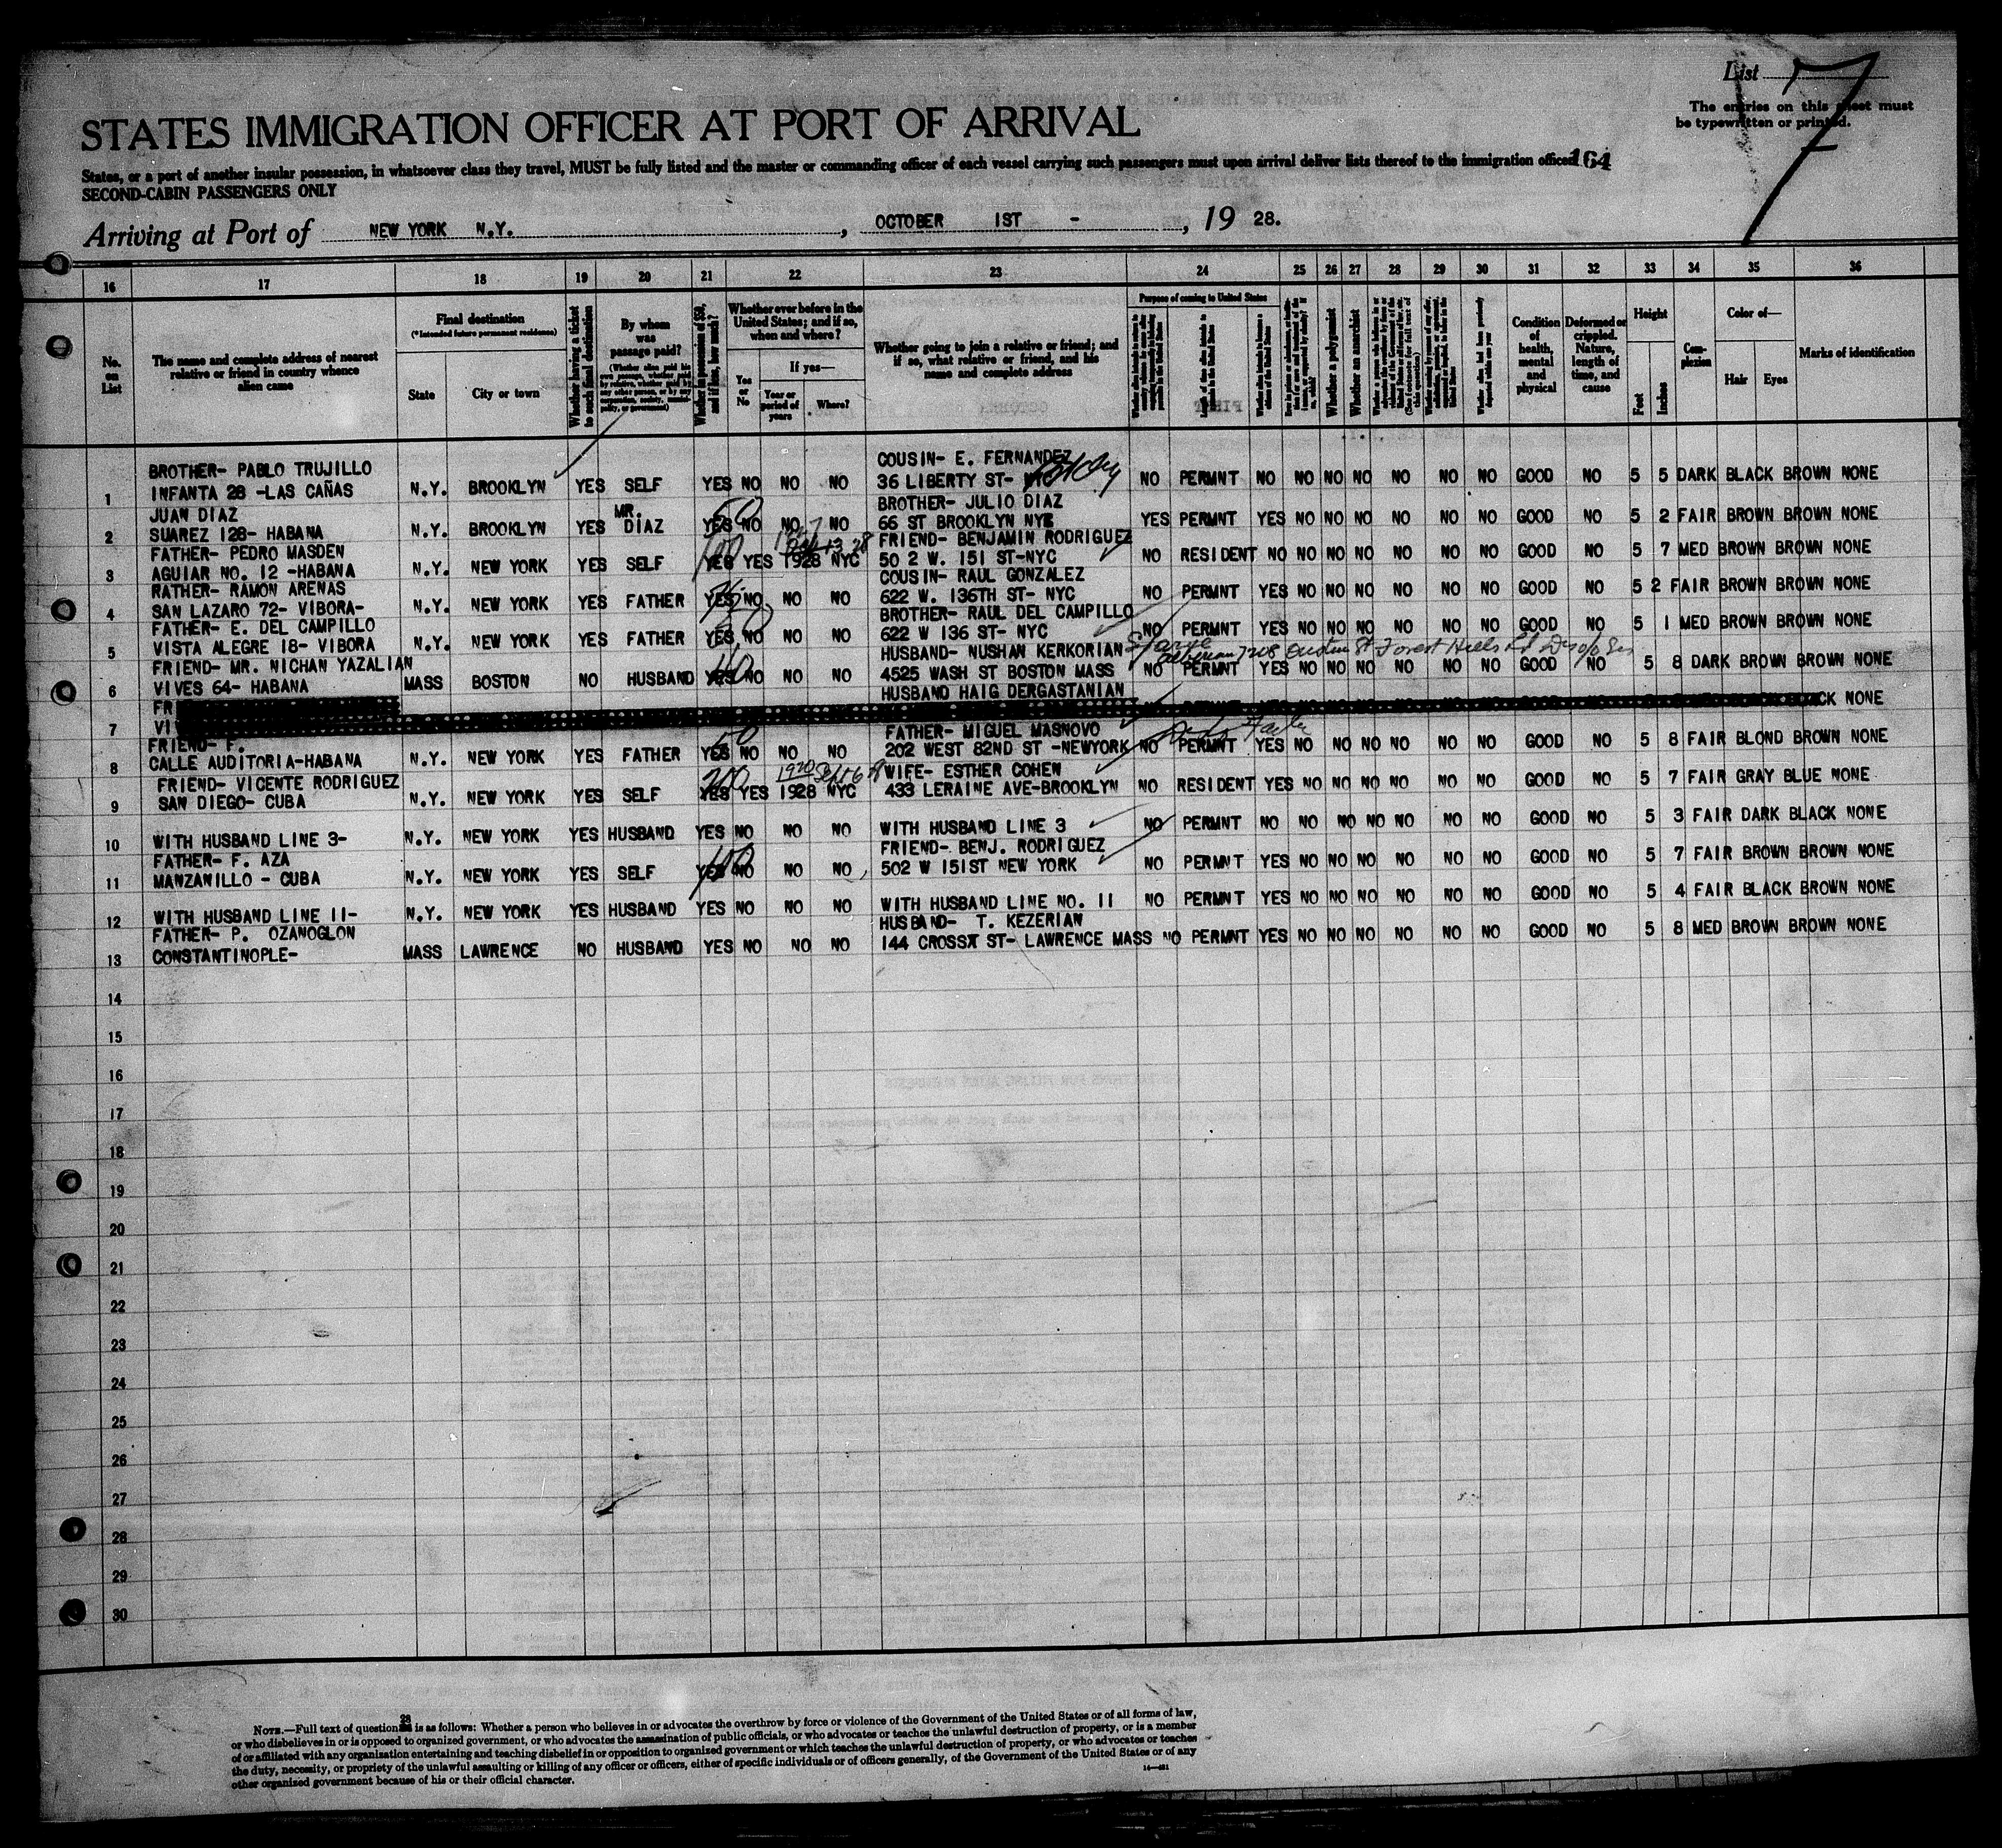 List 7
The entries on this sheet must
be typewritten or printed.
STATES IMMIGRATION OFFICER AT PORT OF ARRIVAL
States, or a port of another insular possession, in whatsoever class they travel, MUST be fully listed and the master or commanding officer of each vessel carrying such passengers must upon arrival deliver lists thereof to the immigration officer 164
SECOND-CABIN PASSENGERS ONLY
Arriving at Port of NEW YORK N.Y. , OCTOBER 1ST - , 19 28.
16 17 18 19 20 21 22 23 24 25 26 27 28 29 30 31 32 33 34 35 36
No. on List
The name and complete address of nearest relative or friend in country whence alien came
Final destination
(*Intended future permanent residence)
State
City or town
Whether having a ticket to such final destination
By whom was passage paid?
Whether ever before in the United States; and if so, when and where?
Yes or No
If yes—
Year or period of years
Where?
Whether going to join a relative or friend; and if so, what relative or friend, and his name and complete address
Purpose of coming to United States
Whether a polygamist
Whether an anarchist
Condition of health, mental and physical
Deformed or crippled. Nature, length of time, and cause
Height
Feet
Inches
Complexion
Color of—
Hair
Eyes
Marks of identification
BROTHER- PABLO TRUJILLO COUSIN- E. FERNANDEZ
1 INFANTA 28 -LAS CAÑAS N.Y. BROOKLYN YES SELF YES NO NO NO 36 LIBERTY ST- NYC NO PERMNT NO NO NO NO NO NO NO GOOD NO 5 5 DARK BLACK BROWN NONE
JUAN DIAZ MR. 50 BROTHER- JULIO DIAZ
2 SUAREZ 128- HABANA N.Y. BROOKLYN YES DIAZ YES NO NO NO 66 ST BROOKLYN NYE YES PERMNT YES NO NO NO NO NO NO GOOD NO 5 2 FAIR BROWN BROWN NONE
FATHER- PEDRO MASDEN 100 FRIEND- BENJAMIN RODRIGUEZ
3 AGUIAR NO. 12 -HABANA N.Y. NEW YORK YES SELF YES YES 1928 NYC 50 2 W. 151 ST-NYC NO RESIDENT NO NO NO NO NO NO NO GOOD NO 5 7 MED BROWN BROWN NONE
RATHER- RAMON ARENAS COUSIN- RAUL GONZALEZ
4 SAN LAZARO 72- VIBORA- N.Y. NEW YORK YES FATHER YES NO NO NO 622 W. 136TH ST- NYC NO PERMNT YES NO NO NO NO NO NO GOOD NO 5 2 FAIR BROWN BROWN NONE
FATHER- E. DEL CAMPILLO BROTHER- RAUL DEL CAMPILLO
5 VISTA ALEGRE 18- VIBORA N.Y. NEW YORK YES FATHER YES NO NO NO 622 W 136 ST- NYC NO PERMNT YES NO NO NO NO NO NO GOOD NO 5 1 MED BROWN BROWN NONE
FRIEND- MR. NICHAN YAZALIAN HUSBAND- NUSHAN KERKORIAN 7208 Austin St Forest Hills
6 VIVES 64- HABANA MASS BOSTON NO HUSBAND YES NO NO NO 4525 WASH ST BOSTON MASS NO PERMNT YES NO NO NO NO NO NO GOOD NO 5 8 DARK BROWN BROWN NONE
FR HUSBAND HAIG DERGASTANIAN
7 VI NONE
FRIEND- F. 50 FATHER- MIGUEL MASNOVO
8 CALLE AUDITORIA-HABANA N.Y. NEW YORK YES FATHER YES NO NO NO 202 WEST 82ND ST -NEWYORK NO PERMNT YES NO NO NO NO NO NO GOOD NO 5 8 FAIR BLOND BROWN NONE
FRIEND- VICENTE RODRIGUEZ 200 1920 Sept 6 28 WIFE- ESTHER COHEN
9 SAN DIEGO- CUBA N.Y. NEW YORK YES SELF YES YES 1928 NYC 433 LERAINE AVE-BROOKLYN NO RESIDENT YES NO NO NO NO NO NO GOOD NO 5 7 FAIR GRAY BLUE NONE
10 WITH HUSBAND LINE 3- N.Y. NEW YORK YES HUSBAND YES NO NO NO WITH HUSBAND LINE 3 NO PERMNT NO NO NO NO NO NO NO GOOD NO 5 3 FAIR DARK BLACK NONE
FATHER- F. AZA 100 FRIEND- BENJ. RODRIGUEZ
11 MANZANILLO - CUBA N.Y. NEW YORK YES SELF YES NO NO NO 502 W 151ST NEW YORK NO PERMNT YES NO NO NO NO NO NO GOOD NO 5 7 FAIR BROWN BROWN NONE
12 WITH HUSBAND LINE 11- N.Y. NEW YORK YES HUSBAND YES NO NO NO WITH HUSBAND LINE NO. 11 NO PERMNT YES NO NO NO NO NO NO GOOD NO 5 4 FAIR BLACK BROWN NONE
FATHER- P. OZANOGLON HUSBAND- T. KEZERIAN
13 CONSTANTINOPLE- MASS LAWRENCE NO HUSBAND YES NO NO NO 144 CROSSX ST- LAWRENCE MASS NO PERMNT YES NO NO NO NO NO NO GOOD NO 5 8 MED BROWN BROWN NONE
14
15
16
17
18
19
20
21
22
23
24
25
26
27
28
29
30
NOTE.—Full text of question 28 is as follows: Whether a person who believes in or advocates the overthrow by force or violence of the Government of the United States or of all forms of law,
or who disbelieves in or is opposed to organized government, or who advocates the assassination of public officials, or who advocates or teaches the unlawful destruction of property, or is a member
of or affiliated with any organization entertaining and teaching disbelief in or opposition to organized government or which teaches the unlawful destruction of property, or who advocates or teaches
the duty, necessity, or propriety of the unlawful assaulting or killing of any officer or officers, either of specific individuals or of officers generally, of the Government of the United States or of any
other organized government because of his or their official character.